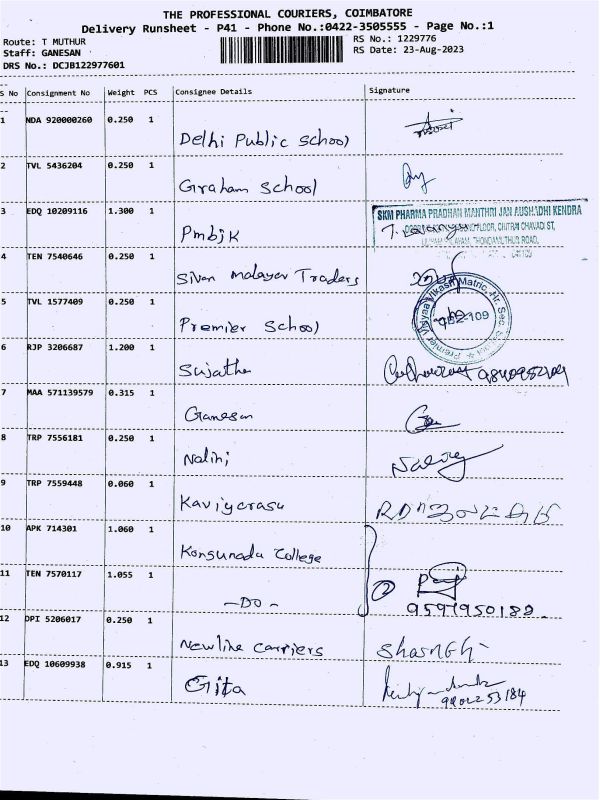 THE PROFESSIONAL COURIERS, COIMBATORE
Delivery Runsheet - P41 - Phone No.:0422-3505555 - Page No.:1
Route: T MUTHUR
RS No.: 1229776
Staff: GANESAN
RS Date: 23-Aug-2023
DRS No.: DCJB122977601
S No Consignment No Weight PCS Consignee Details Signature
1 NDA 920000260 0.250 1 Delhi Public School
2 TVL 5436204 0.250 1 Graham School
3 EDQ 10209116 1.300 1 Pmbjk
SKM PHARMA PRADHAN MANTHRI JAN AUSHADHI KENDRA
FLOOR, CHITRAI CHAVADI ST,
THONDAMUTHUR ROAD,
4 TEN 7540646 0.250 1 Sivan Malayan Traders
5 TVL 1577409 0.250 1 Premier School
Premier Vidyaa Vikash Matric. Hr. Sec. School
109
6 RJP 3206687 1.200 1 Sujatha
7 MAA 571139579 0.315 1 Ganesan
8 TRP 7556181 0.250 1 Nalini
9 TRP 7559448 0.060 1 Kaviyarasu
10 APK 714301 1.060 1 Kongunadu College
11 TEN 7570117 1.055 1 -DO- 2
9597950182
12 DPI 5206017 0.250 1 Newline Carriers
13 EDQ 10609938 0.915 1 Gita